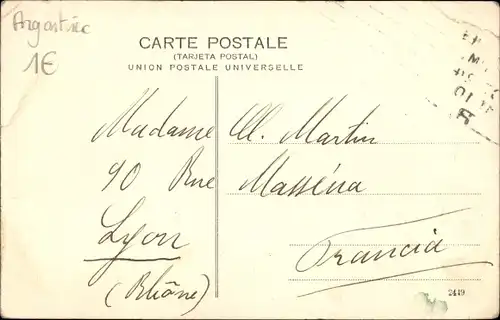 Argentine
1€
CARTE POSTALE
(TARJETA POSTAL)
UNION POSTALE UNIVERSELLE
Madame M. Martin
90 Rue Masséna
Lyon
Francia
(Rhône)
2449